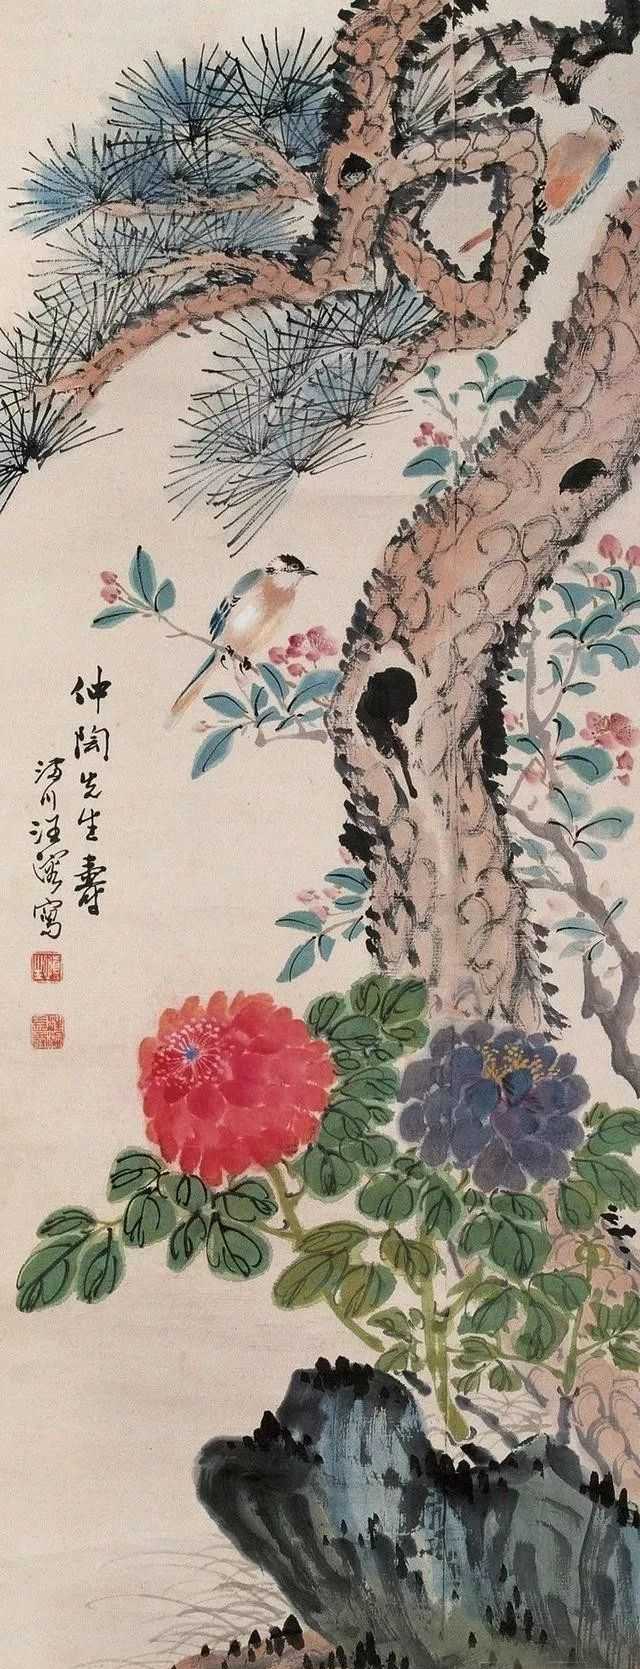 仲陶先生壽
滿川汪溶寫